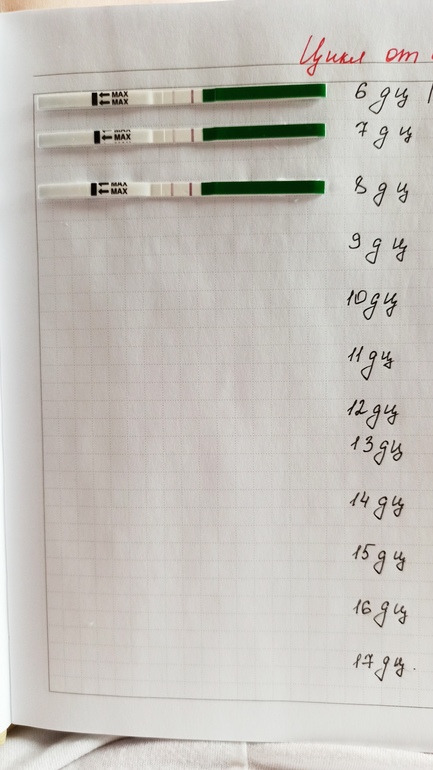 Цикл от
MAX
MAX
6 дц
MAX
MAX
7 дц
MAX
MAX
8 дц
9 дц
10 дц
11 дц
12 дц
13 дц
14 дц
15 дц
16 дц
17 дц.